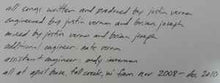 all songs written and produced by justin vernon
engineered by justin vernon and brian joseph
mixed by justin vernon and brian joseph
additional engineer nate vernon
assistant engineer andy
all at april base, fall creek, wi from nov 2008 - dec 2010